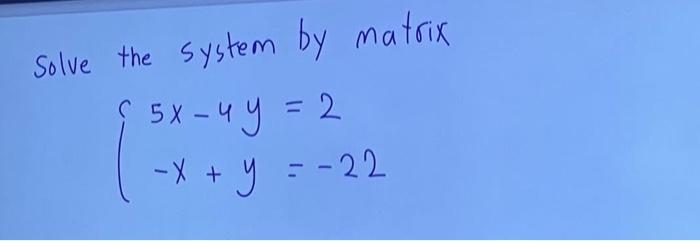 Solve the system by matrix
5x - 4y = 2
-x + y = -22